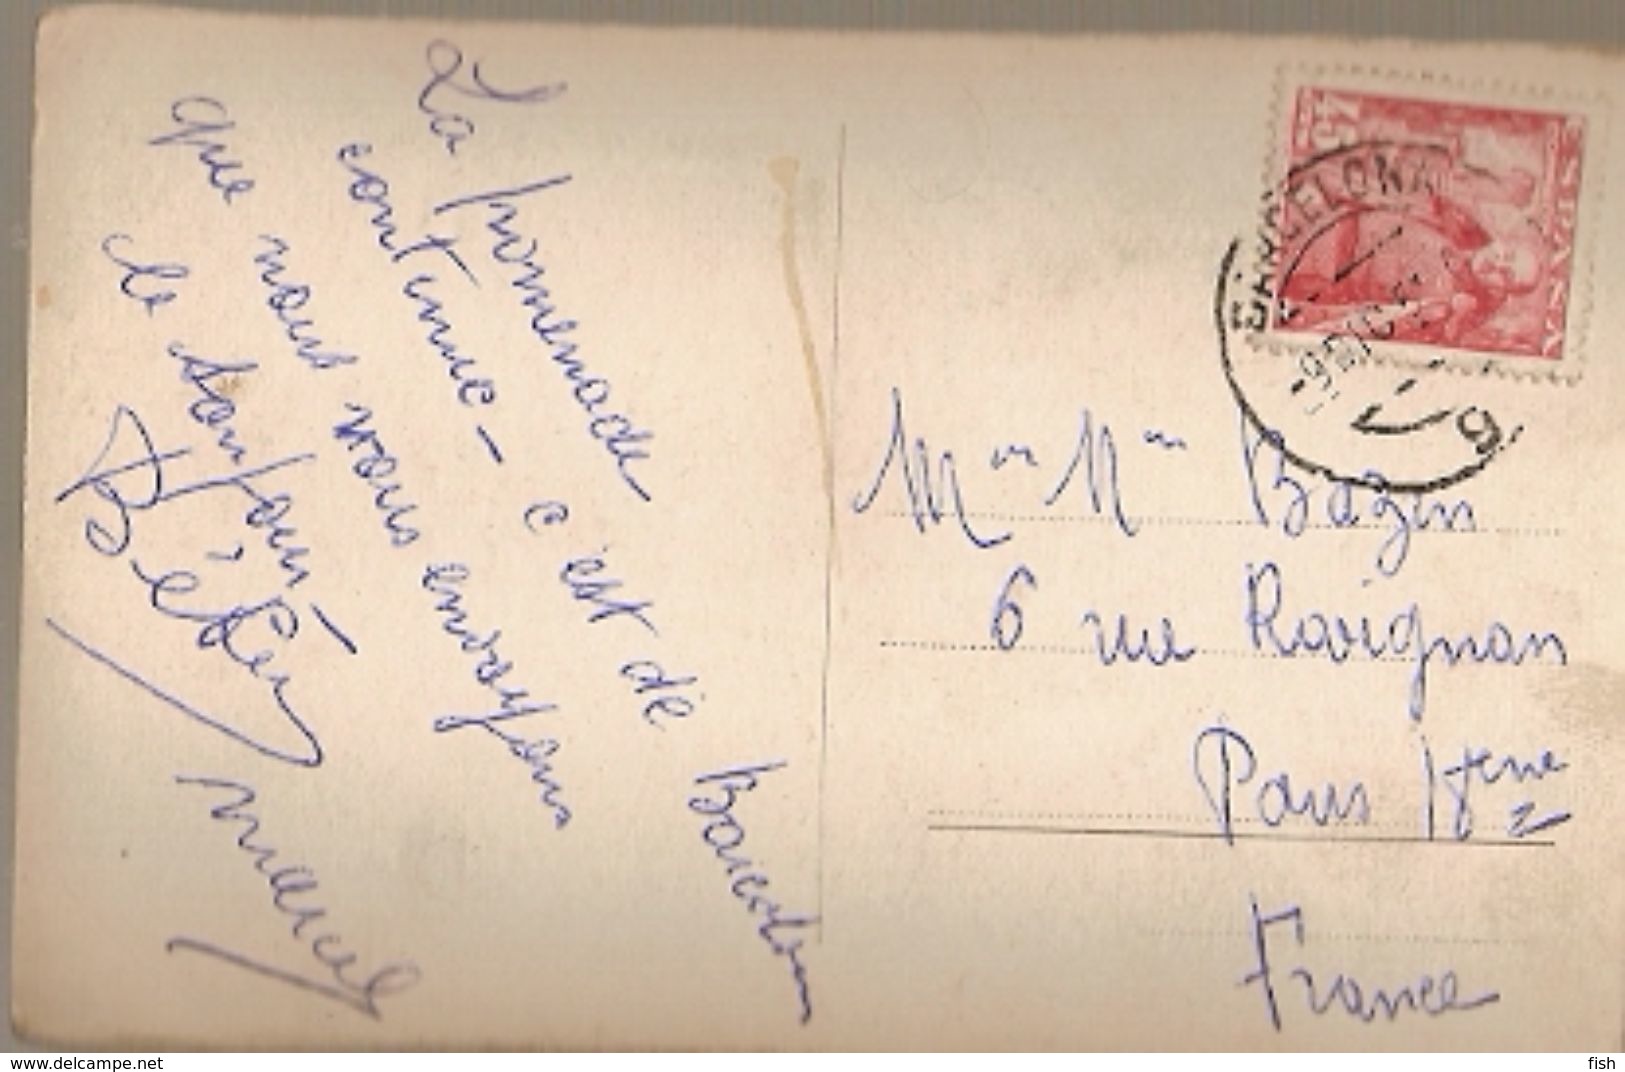 La promenade
continue - c'est de Barcelone
que nous vous envoyons
le bonjour -
Marcel
45
ESPAÑA
BARCELONA
9 DIC
9
Mr Mme Bazin
6 rue Ravignan
Paris 18eme
France
www.delcampe.net
fish